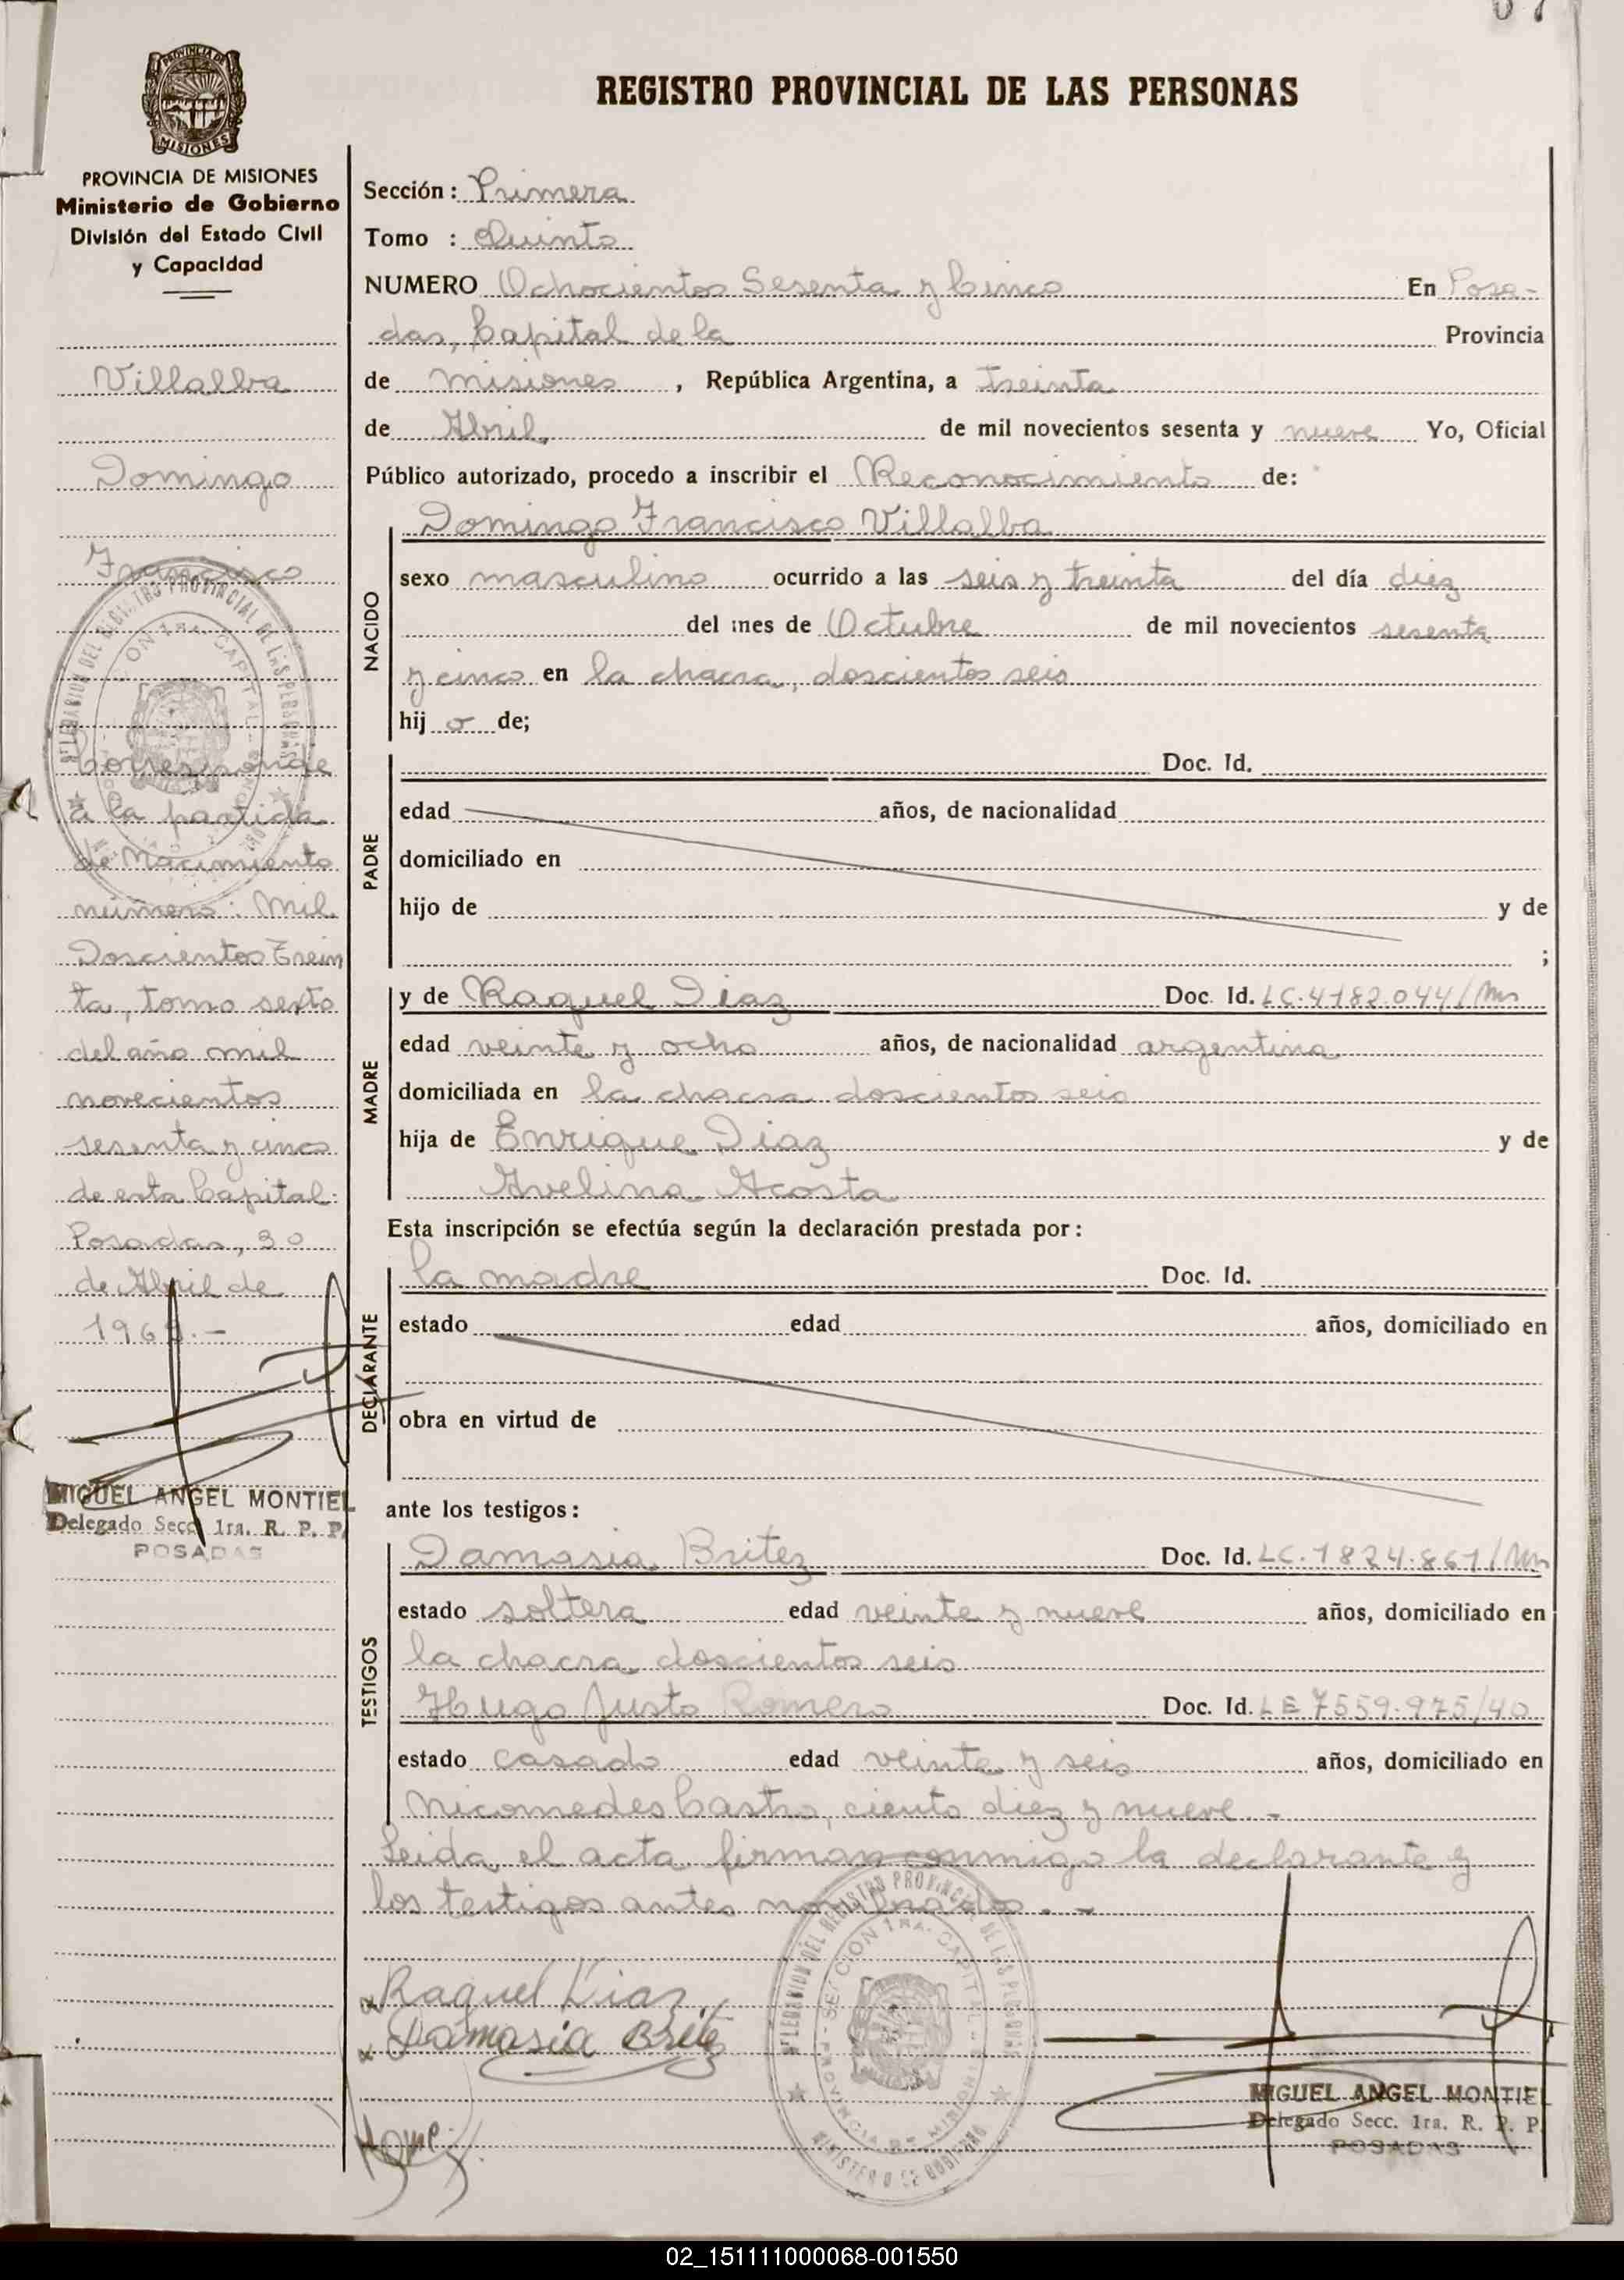 REGISTRO PROVINCIAL DE LAS PERSONAS
PROVINCIA DE MISIONES
MISIONES
PROVINCIA DE MISIONES
Ministerio de Gobierno
División del Estado Civil
y Capacidad
Villalba
Domingo
Francisco
Corresponde
a la partida
de Nacimiento
número: Mil
Doscientos Trein
ta, tomo sexto
del año mil
novecientos
sesenta y cinco
de esta Capital.
Posadas, 30
de Abril de
1969.-
MIGUEL ANGEL MONTIEL
Delegado Secc. 1ra. R. P. P.
POSADAS
Sección: Primera
Tomo : Quinto
NUMERO Ochocientos Sesenta y Cinco En Posa-
das, Capital de la Provincia
de Misiones, República Argentina, a treinta
de Abril de mil novecientos sesenta y nueve Yo, Oficial
Público autorizado, procedo a inscribir el Reconocimiento de:
NACIDO
Domingo Francisco Villalba
sexo masculino ocurrido a las seis y treinta del día diez
del mes de Octubre de mil novecientos sesenta
y cinco en la chacra, doscientos seis
hij o de;
PADRE
Doc. Id.
edad años, de nacionalidad
domiciliado en
hijo de y de
;
MADRE
y de Raquel Diaz Doc. Id. LC. 4182.044/Ms
edad veinte y ocho años, de nacionalidad argentina
domiciliada en la chacra doscientos seis
hija de Enrique Diaz y de
Avelina Acosta
Esta inscripción se efectúa según la declaración prestada por:
DECLARANTE
la madre Doc. Id.
estado edad años, domiciliado en
obra en virtud de
ante los testigos:
TESTIGOS
Damasia Britez Doc. Id. LC. 1824.861/Ms
estado soltera edad veinte y nueve años, domiciliado en
la chacra doscientos seis
Hugo Justo Romero Doc. Id. LE 7559.975/40
estado casado edad veinte y seis años, domiciliado en
Nicomedes Castro, ciento diez y nueve.-
Leida el acta firman conmigo la declarante y
los testigos antes nombrados.-
Raquel Diaz
Damasia Britez
MIGUEL ANGEL MONTIEL
Delegado Secc. 1ra. R. P. P.
POSADAS
DELEGACION DEL REGISTRO PROVINCIAL DE LAS PERSONAS
SECCION 1RA. CAPITAL
PROVINCIA DE MISIONES
MINISTERIO DE GOBIERNO
02_151111000068-001550